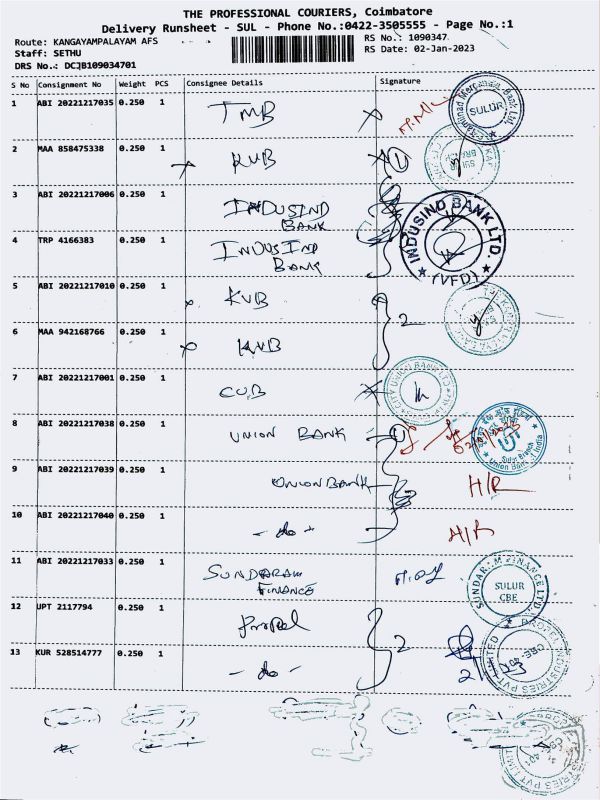 THE PROFESSIONAL COURIERS, Coimbatore
Delivery Runsheet - SUL - Phone No.:0422-3505555 - Page No.:1
Route: KANGAYAMPALAYAM AFS
RS No.: 1090347
Staff: SETHU
RS Date: 02-Jan-2023
DRS No.: DCJB109034701
S No Consignment No Weight PCS Consignee Details Signature
1 ABI 20221217035 0.250 1 TMB
Tamilnad Mercantile Bank Ltd. SULUR
2 MAA 858475338 0.250 1 KVB 1
3 ABI 20221217006 0.250 1 INDUSIND BANK
INDUSIND BANK LTD. (VFD)
4 TRP 4166383 0.250 1 INDUSIND BANK
5 ABI 20221217010 0.250 1 KVB 2
6 MAA 942168766 0.250 1 KVB
7 ABI 20221217001 0.250 1 CUB
CITY UNION BANK LTD
8 ABI 20221217038 0.250 1 UNION BANK
Sulur Branch Union Bank of India
9 ABI 20221217039 0.250 1 UNION BANK H/R
10 ABI 20221217040 0.250 1 - do - H/R
11 ABI 20221217033 0.250 1 SUNDARAM FINANCE
SUNDARAM FINANCE LTD. SULUR CBE
12 UPT 2117794 0.250 1 Propel 2
13 KUR 528514777 0.250 1 - do -
PROPEL INDUSTRIES PVT LIMITED